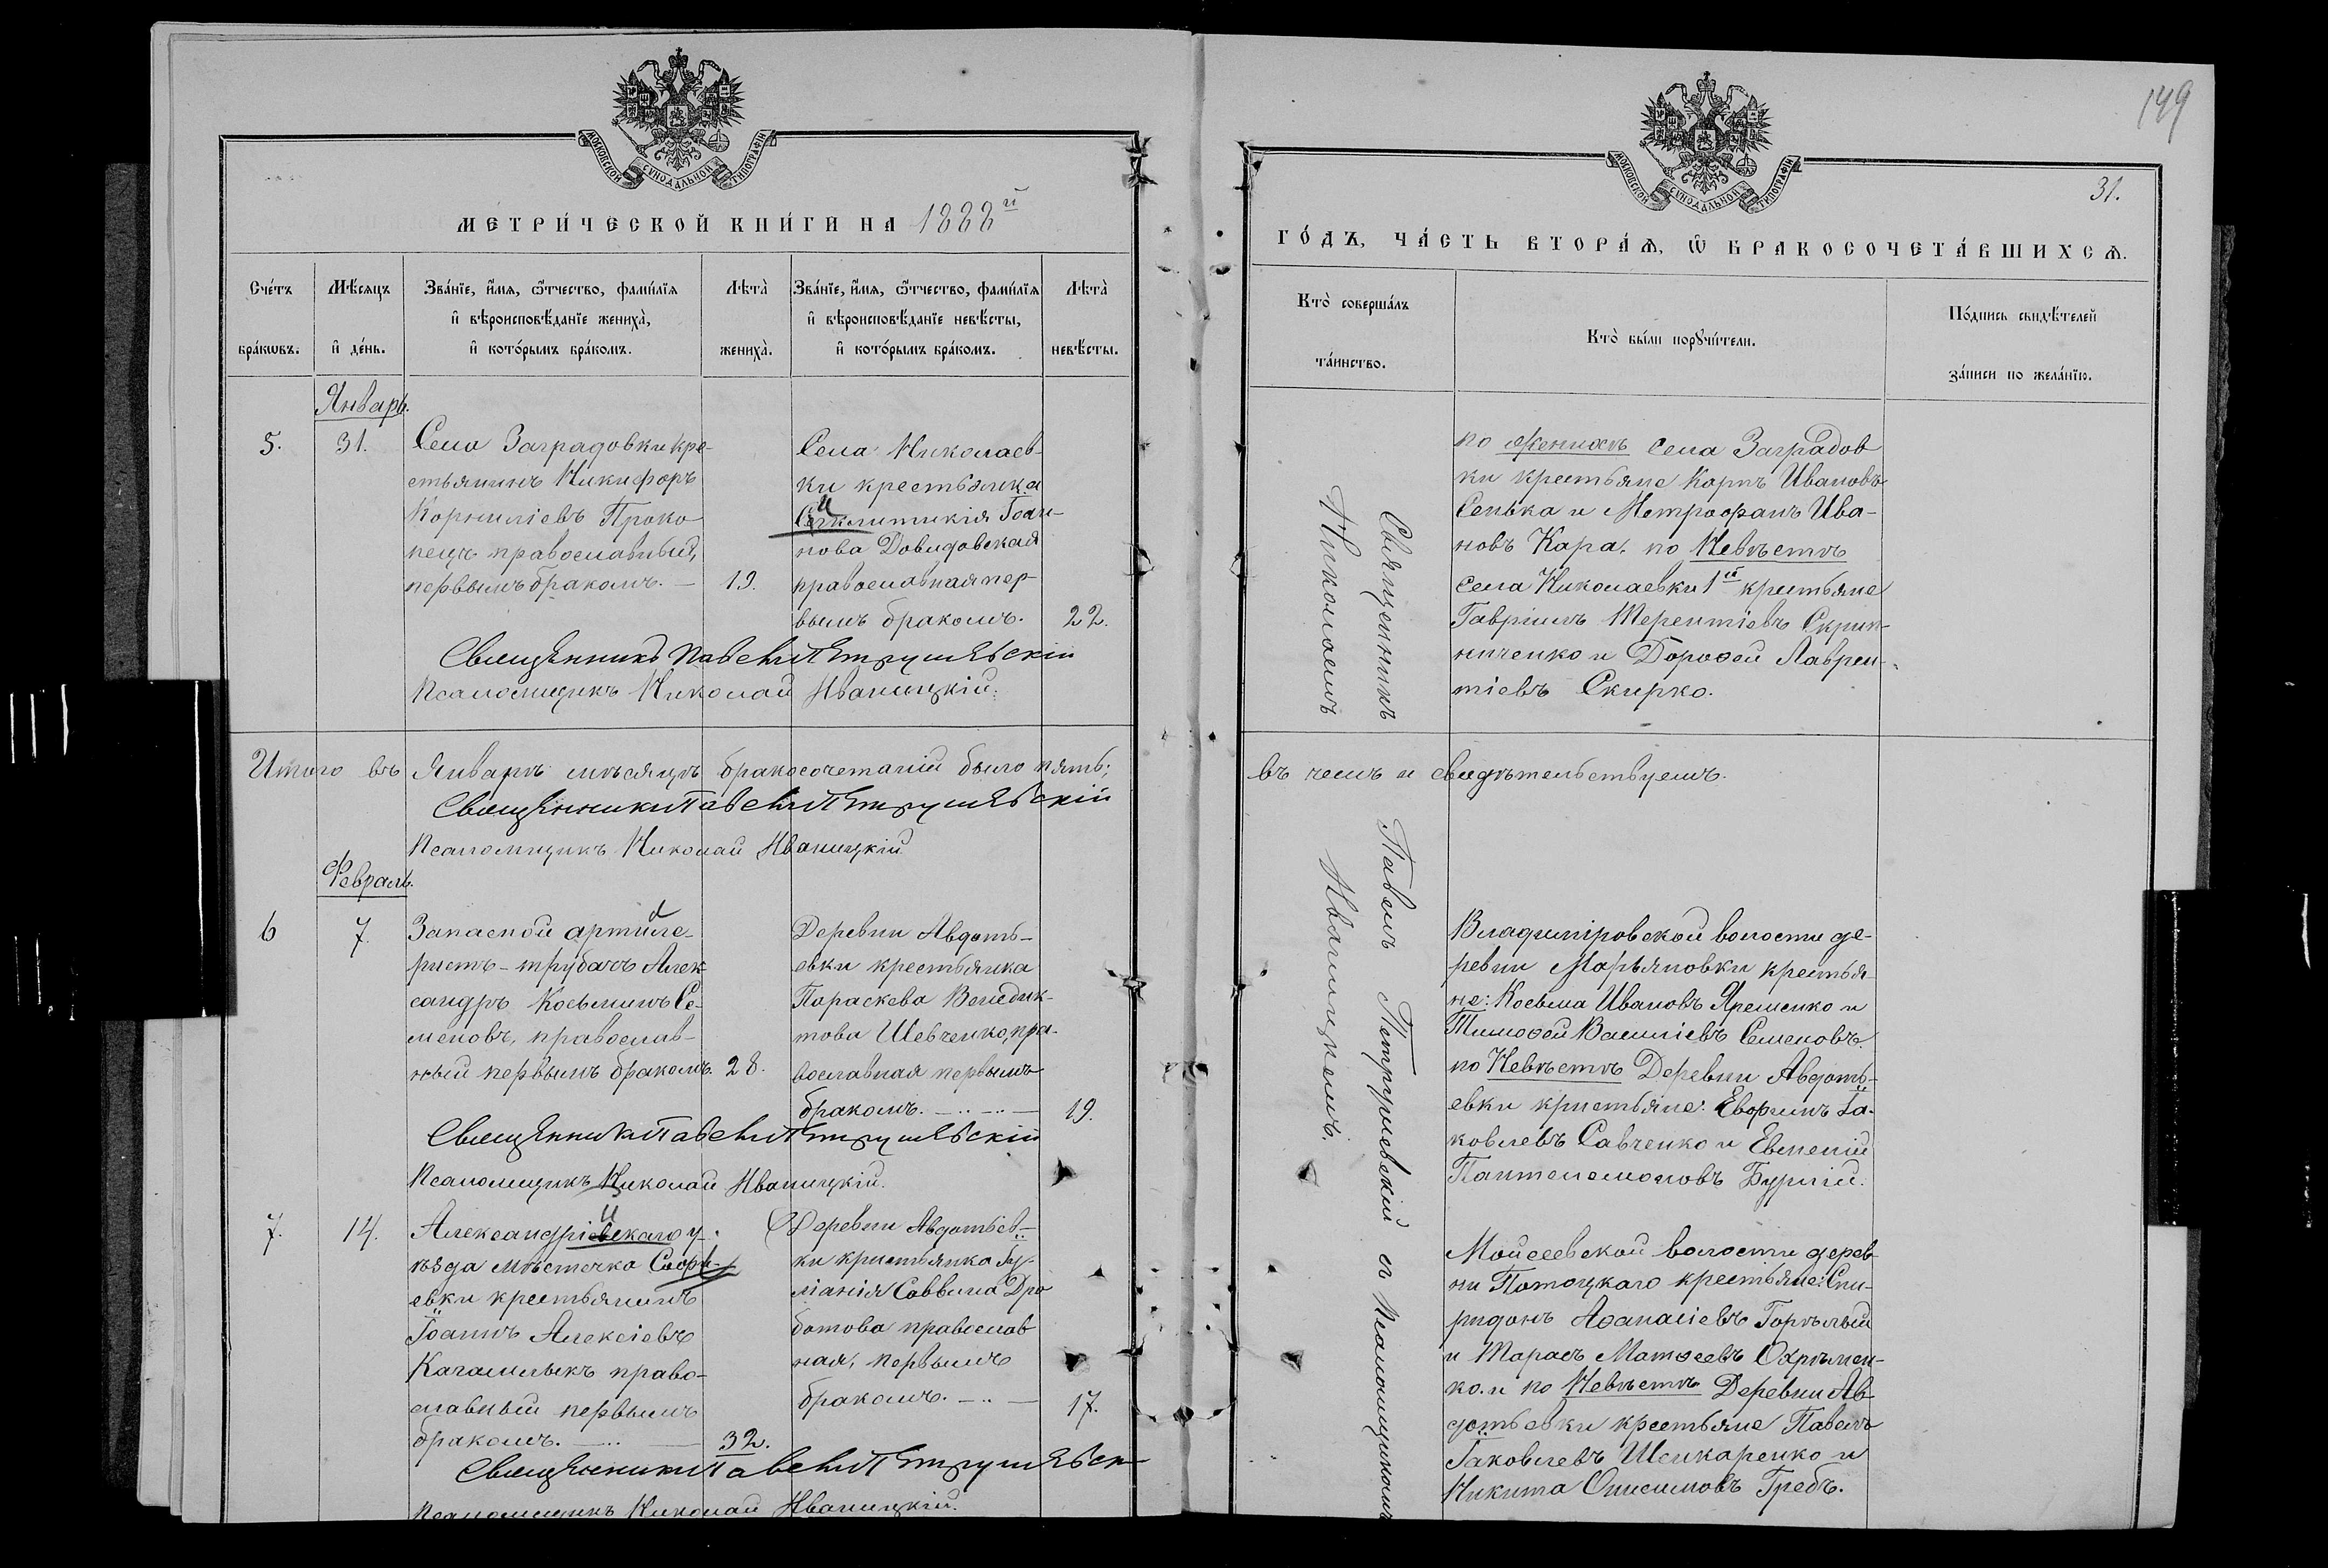 МОСКОВСКОЙ СУНОДАЛЬНОЙ ТИПОГРАФІИ
МЕТРИ́ЧЕСКОЙ КНИ́ГИ НА 1888й
Сче́тъ бра́кѡвъ.
Мѣ́сяцъ и҆ де́нь.
Зва́нїе, и҆́мѧ, ѻ҆́тчество, фами́лїѧ
и҆ вѣроисповѣ́данїе жениха̀,
и҆ кото́рымъ бра́комъ.
Лѣта̀ жениха̀.
Зва́нїе, и҆́мѧ, ѻ҆́тчество, фами́лїѧ
и҆ вѣроисповѣ́данїе невѣ́сты,
и҆ кото́рымъ бра́комъ.
Лѣта̀ невѣ́сты.
Январь.
5.
31.
Села Заградовки кре-
стьянинъ Никифоръ
Корниліевъ Проко
пецъ православный,
первымъ бракомъ. —
19.
Села Николаев-
ки крестьянка
Синклитикія Іоан-
нова Довидовская
православная пер-
вымъ бракомъ.
22.
Священникъ Павелъ Петрушевскій
Псаломщикъ Николай Иваницкій.
Итого въ Январѣ мѣсяцѣ бракосочетаній было пять;
Священникъ Павелъ Петрушевскій
Псаломщикъ Николай Иваницкій
Февраль.
6
7.
Запасной артиле-
ристъ - трубачъ Алек
сандръ Косьминъ Се-
меновъ, православ-
ный первымъ бракомъ.
28.
Деревни Авдоть-
евки крестьянка
Параскева Венедик-
това Шевченко, пра-
вославная первымъ
бракомъ. —..—..—
19.
Священникъ Павелъ Петрушевскій
Псаломщикъ Николай Иваницкій.
7.
14.
Александрійскаго у-
ѣзда мѣстечка Софі-
евки крестьянинъ
Іоаннъ Алексіевъ
Качамлыкъ право-
славный первымъ
бракомъ. —..—
32.
Деревни Авдотьев-
ки крестьянка Іу-
ліанія Саввина Дро
ботова православ
ная, первымъ
бракомъ. —..—
17.
Священникъ Павелъ Петрушевск
Псаломщикъ Николай Иваницкій.
149
МОСКОВСКОЙ СУНОДАЛЬНОЙ ТИПОГРАФІИ
31.
ГО́ДЪ, ЧА́СТЬ ВТОРА́Ѧ, Ѽ БРАКОСОЧЕТА́ВШИХСѦ.
Кто̀ соверша́лъ та́инство.
Кто̀ бы́ли порꙋчи́тели.
По́дпись свидѣ́телей за́писи по жела́нїю.
Священникъ Павелъ Петрушевскій съ Псаломщикомъ
Николаемъ Иваницкимъ.
по Женихѣ села Заградов
ки крестьяне Карпъ Ивановъ
Сенька и Метрофанъ Ива-
новъ Кара. по Невѣстѣ
села Николаевки 1й крестьяне
Гавріилъ Терентіевъ Скрип-
ниченко и Дорофей Лаврен-
тіевъ Скирко.
въ чемъ и свидѣтельствуемъ.
Владиміровской волости де-
ревни Марьяновки крестья
не: Косьма Ивановъ Яременко и
Тимофей Василіевъ Семеновъ.
по Невѣстѣ Деревни Авдоть-
евки крестьяне: Евфимъ Іа-
ковлевъ Савченко и Евмений
Пантелемоновъ Бурлій.
Мойсеевской волости дерев-
ни Потоцкаго крестьяне: Спи-
ридонъ Аѳанасіевъ Горѣлый
и Тарасъ Матѳеевъ Охрѣмен-
ко. и по Невѣстѣ Деревни Ав-
дотьевки крестьяне Павелъ
Іаковлевъ Шинкаренко и
Никита Онисимовъ Гребъ.